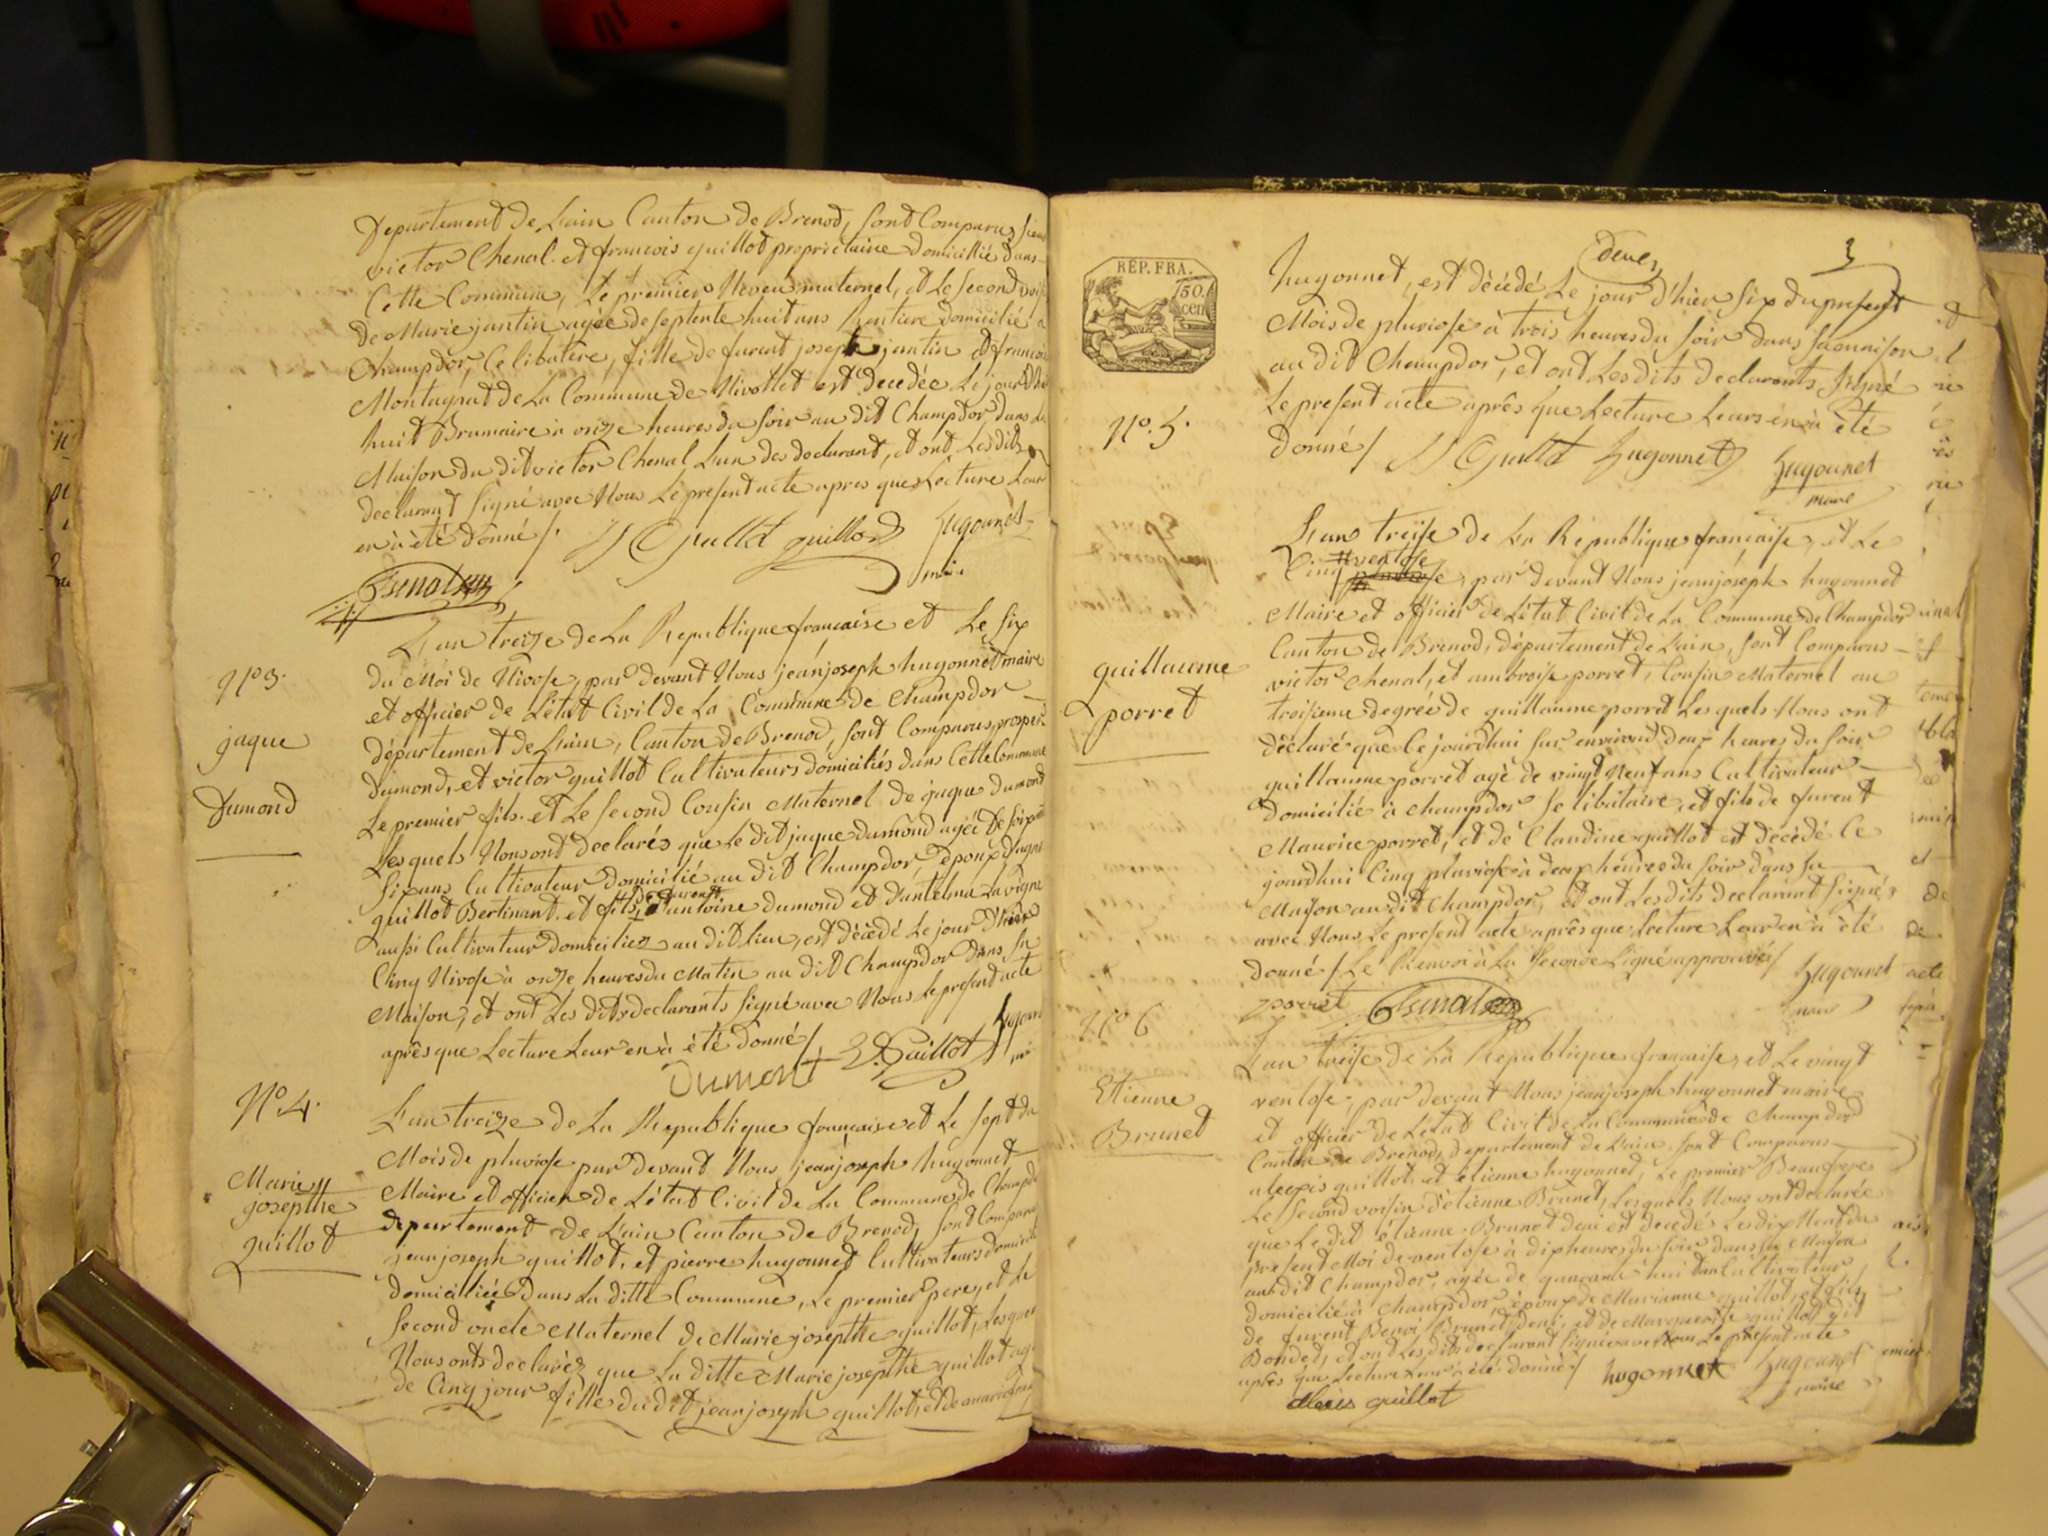 Departement de Lain Canton de Brenod, sont Comparus
victor Chenal. et francois guillot proprietaire domicillié dans
Cette Commune, Le premier Neveu maternel, et Le second
de Marie jantin agée de septente huit ans Rentiere domicilié a
Champdor, Celibatere, fille de furent joseph jantin et francois
Montagnat de La Commune de Nivollet est decedée Le jour d'hi
huit Brumaire à onze heures du soir au dit Champdor, dans La
Maison du dit victor Chenal L'un des declarant, et ont Les dits
declarant signé avec Nous Le present acte apres que Lecture Leur
en à été donné /. guillod hugonet
maire
L'an treize de La Republique francaise et Le six
N° 3.
du Moi de Nivose, par devant Nous jeanjoseph hugonnet maire
et officier de L'état Civil de La Commune de Champdor
jaque
département de Lain, Canton de Brenod, sont Comparus, prosper
Dumond
dumond, et victor guillot Cultivateurs domiciliés dans Cette Commune
Le premier fils. et Le second Cousin Maternel de jaque dumond
Lesquels Nous ont declarés que Le dit jaque dumond agée de soixante
six ans Cultivateur domicilié au dit Champdor, époux d'
guillot Bertinant. et fils de furent antoine dumond et d'antelma Lavigne
aussi Cultivateur domiciliez au dit lieu, est décédé Le jour d'hier
Cinq Nivose à onze heures du Matin au dit Champdor dans sa
Maison, et ont Les dits declarants signé avec Nous Le present acte
aprés que Lecture Leur en à été donné /
Dumont Guillot
N° 4.
L'an treize de La Republique francaise et Le sept du
Mois de pluviose par devant Nous jeanjoseph hugonnet
Marie
Maire et officier de L'état Civil de La Commune de Champdor
josepthe
departement de L'ain Canton de Brenod, sont Comparus
guillot
jeanjoseph guillot, et pierre hugonnet Cultivateurs
domiciliée dans La ditte Commune, Le premier pere, et Le
second oncle Maternel de Marie josepthe guillot, Lesquels
Nous onts declarés que La ditte Marie josepthe guillot agé
de Cinq jour fille du dit jeanjoseph guillot, et de
deux
3
REP. FRA.
50.
cen
hugonnet, est décédé Le jour d'hier six du present
Mois de pluviose à trois heures du soir dans sa maison
au dit Champdor, et ont Les dits declarants signé
Le present acte aprês que Lecture Leurs en à été
N° 5.
donné / hugonnet hugonet
maire
L'an treise de La Republique francaise, et Le
Cinq ventose, par devant Nous jeanjoseph hugonnet
Maire et officier de L'état Civil de La Commune de Champdor
Canton de Brenod, département de Lain, sont Comparus
guillaume
porret
victor Chenal, et ambroise porret, Cousin Maternel au
troisieme degrée de guillaume porret Lesquels Nous ont
déclaré que Ce jourdhui sur environd deux heures du soir
guillaume porret agé de vingt Neuf ans Cultivateur
domicilié à Champdor Selibitaire, et fils de furent
Maurice porret, et de Claudine guillot est décédé Ce
jourdhui Cinq pluviose à deux heures du soir dans sa
Maison au dit Champdor, et ont Les dits declarant signés
avec Nous, Le present acte aprês que Lecture Leur en à été
donné / Le Renvoi à La seconde Ligne approuvés / hugonet
maire
porret
N° 6
L'an treise de La Republique francaise, et Le vingt
Etienne
Brunet
ventose, par devant Nous jeanjoseph hugonnet maire
et officier de L'état Civil de La Commune de Champdor
Canton de Brenod, departement de Lain, sont Comparus
aleepis guillot, et étienne hugonnet, Le premier Beaufrere
Le second voisin d'étienne Brunet, Lesquels Nous ont declarée
que Le dit étienne Brunet est decedé Le dix Neuf du
present Moi de ventose à dix heures du soir dans sa Maison
au dit Champdor, agée de quarante huit ans Cultivateur
domicilié à Champdor, époux de Marianne guillot, et fils
de furent Benoi Brunet, et de Marguerite guillot dit
Bondet, et ont Les dits declarant signée avec Nous Le present acte
aprés que Lecture Leur à été donnée / hugonnet hugonet
maire
alexis guillot